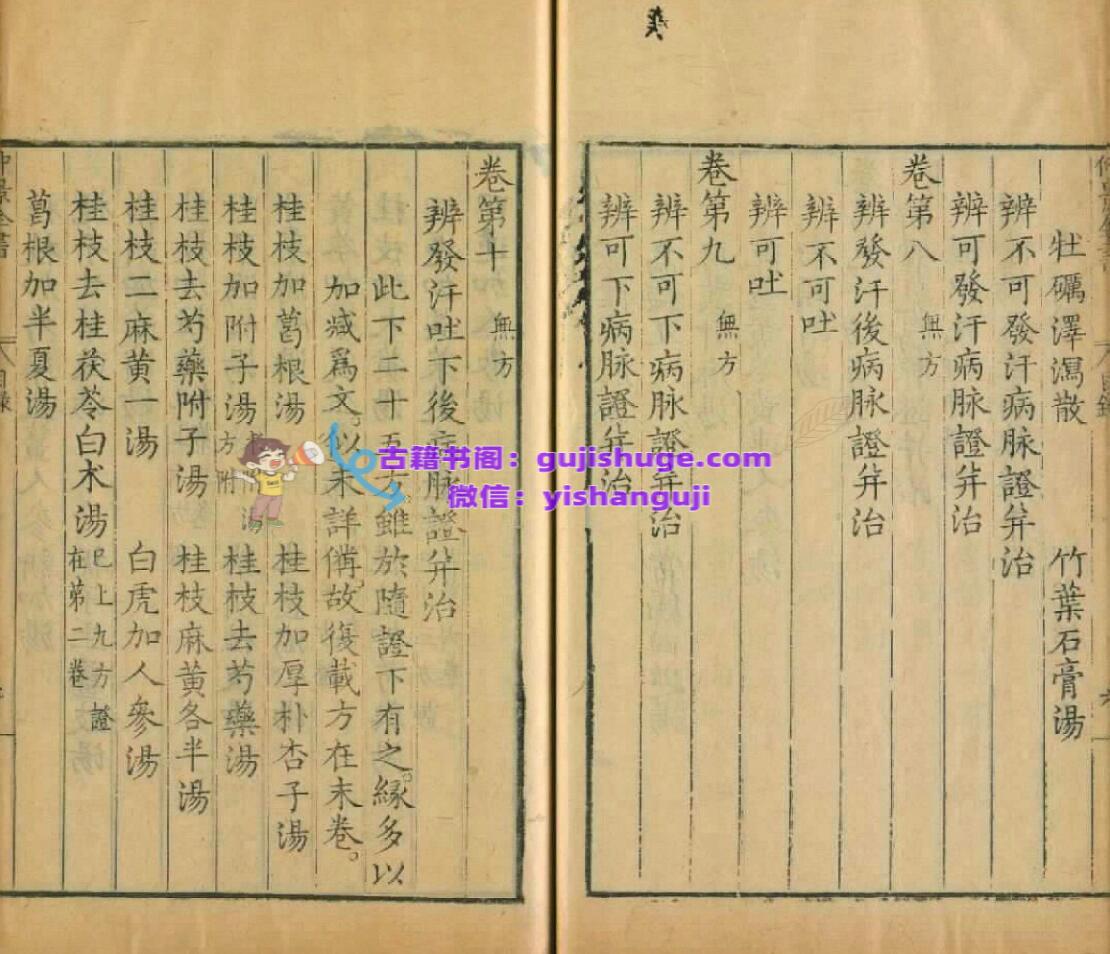 牡礪澤瀉散　竹葉石膏湯
辨不可發汗病脉證幷治
辨可發汗病脉證幷治
卷第八　無方
辨發汗後病脉證幷治
辨不可吐
辨可吐
卷第九　無方
辨不可下病脉證幷治
辨可下病脉證幷治
卷第十　無方
辨發汗吐下後病脉證幷治
此下二十五方雖於隨證下有之。緣多以
加減爲文。似未詳備。故復載方在末卷。
桂枝加葛根湯　桂枝加厚朴杏子湯
桂枝加附子湯　桂枝去芍藥湯
桂枝去芍藥附子湯　桂枝麻黄各半湯
桂枝二麻黄一湯　白虎加人參湯
桂枝去桂茯苓白术湯 已上九方證在第二卷
葛根加半夏湯
目錄
古籍书阁：gujishuge.com
微信：yishanguji